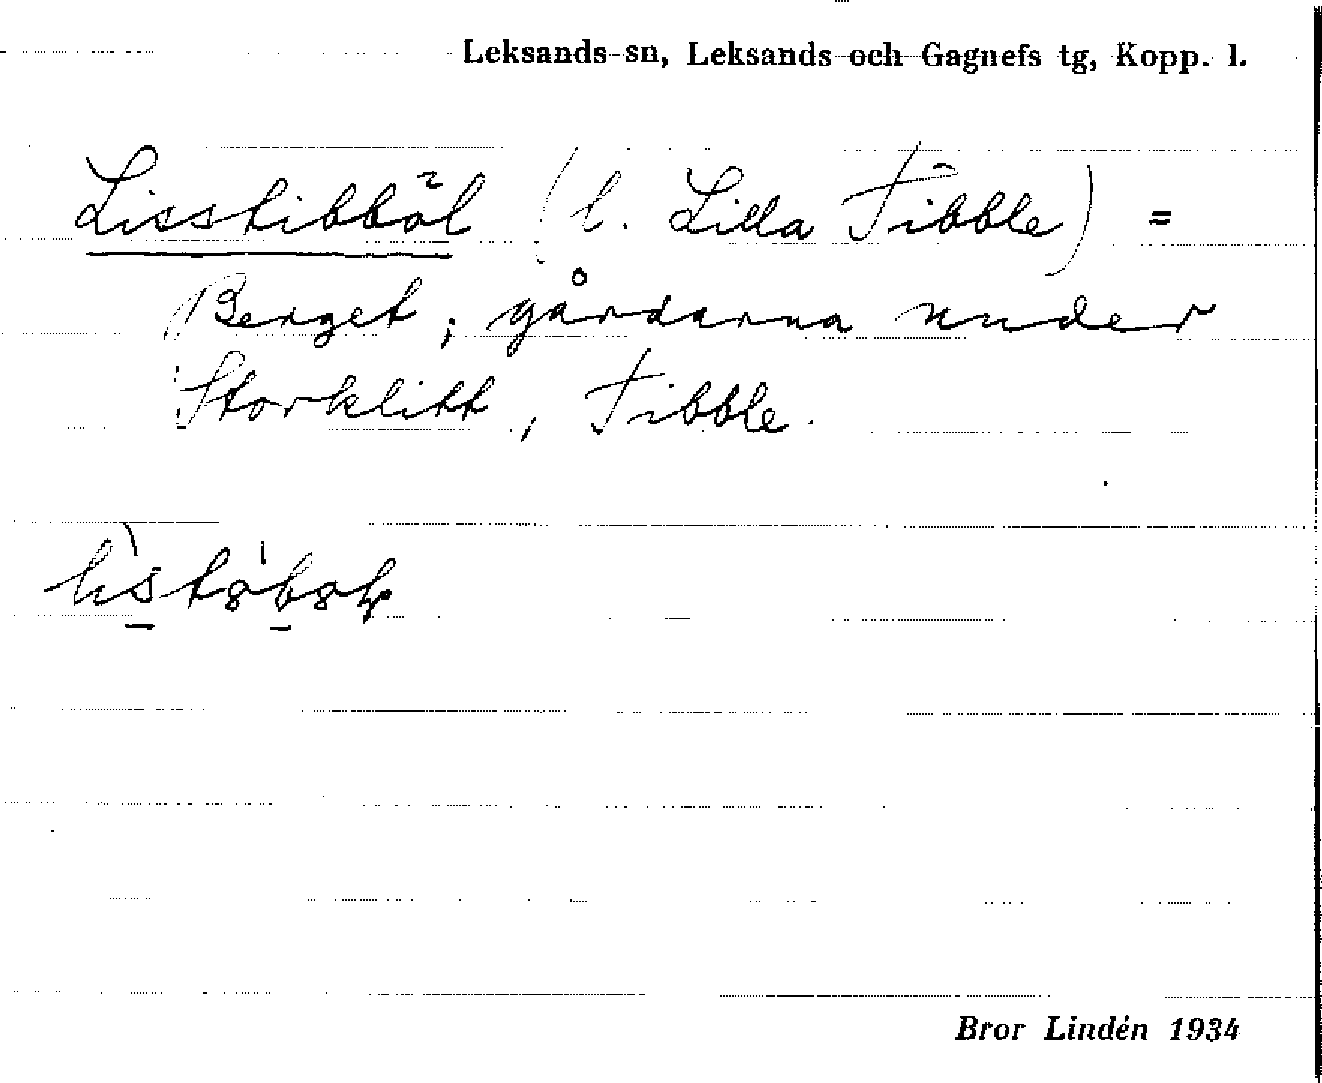 Leksands-sn, Leksands och Gagnefs tg, Kopp. l.
Lisstibböl (l. Lilla Tibble) =
Berget, gårdarna under
Storklitt, Tibble.
Bror Lindén 1934